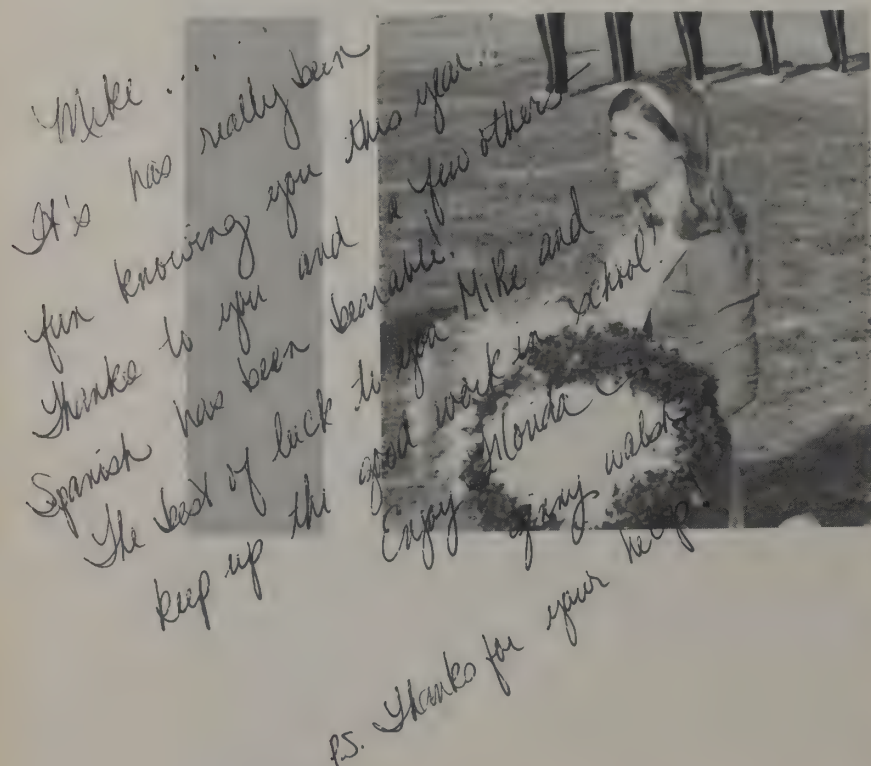 Mike ........
It's has really been
fun knowing you this year.
Thanks to you and a few others
Spanish has been bearable!
The best of luck to you Mike and
keep up the good work in school!
Enjoy
Ginny Walsh
P.S. Thanks for your help